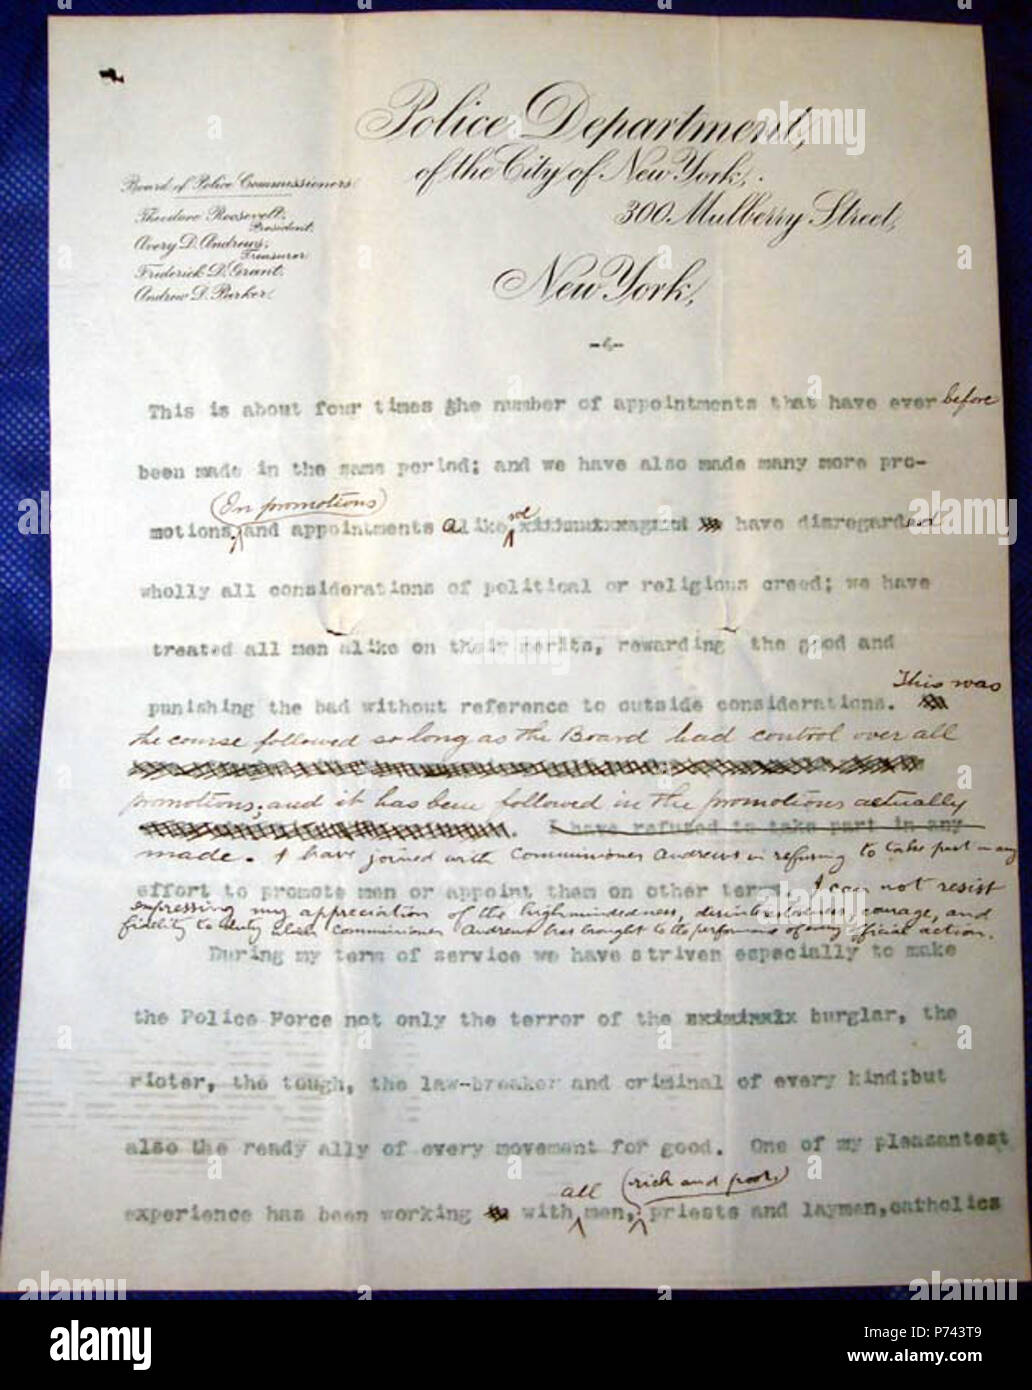 Police Department,
of the City of New York,
300 Mulberry Street,
New York,
Board of Police Commissioners
Theodore Roosevelt,
President.
Avery D. Andrews,
Treasurer
Frederick D. Grant.
Andrew D. Parker.
-6-
This is about four times the number of appointments that have ever before
been made in the same period; and we have also made many more pro-
(In promotions)
motions, and appointments alike we have disregarded
wholly all considerations of political or religious creed; we have
treated all men alike on their merits, rewarding the good and
This was
punishing the bad without reference to outside considerations.
the course followed so long as the Board had control over all
promotions; and it has been followed in the promotions actually
I have refused to take part in any
made. I have joined with Commissioner Andrews in refusing to take part in any
effort to promote men or appoint them on other terms. I can not resist
expressing my appreciation of the highmindedness, disinterestedness, courage, and
fidelity to duty which Commissioner Andrews has brought to the performance of every official action.
During my term of service we have striven especially to make
the Police Force not only the terror of the burglar, the
rioter, the tough, the law-breaker and criminal of every kind;but
also the ready ally of every movement for good. One of my pleasantest
all (rich and poor,)
experience has been working with men, priests and laymen,catholics
alamy
Image ID: P743T9
www.alamy.com